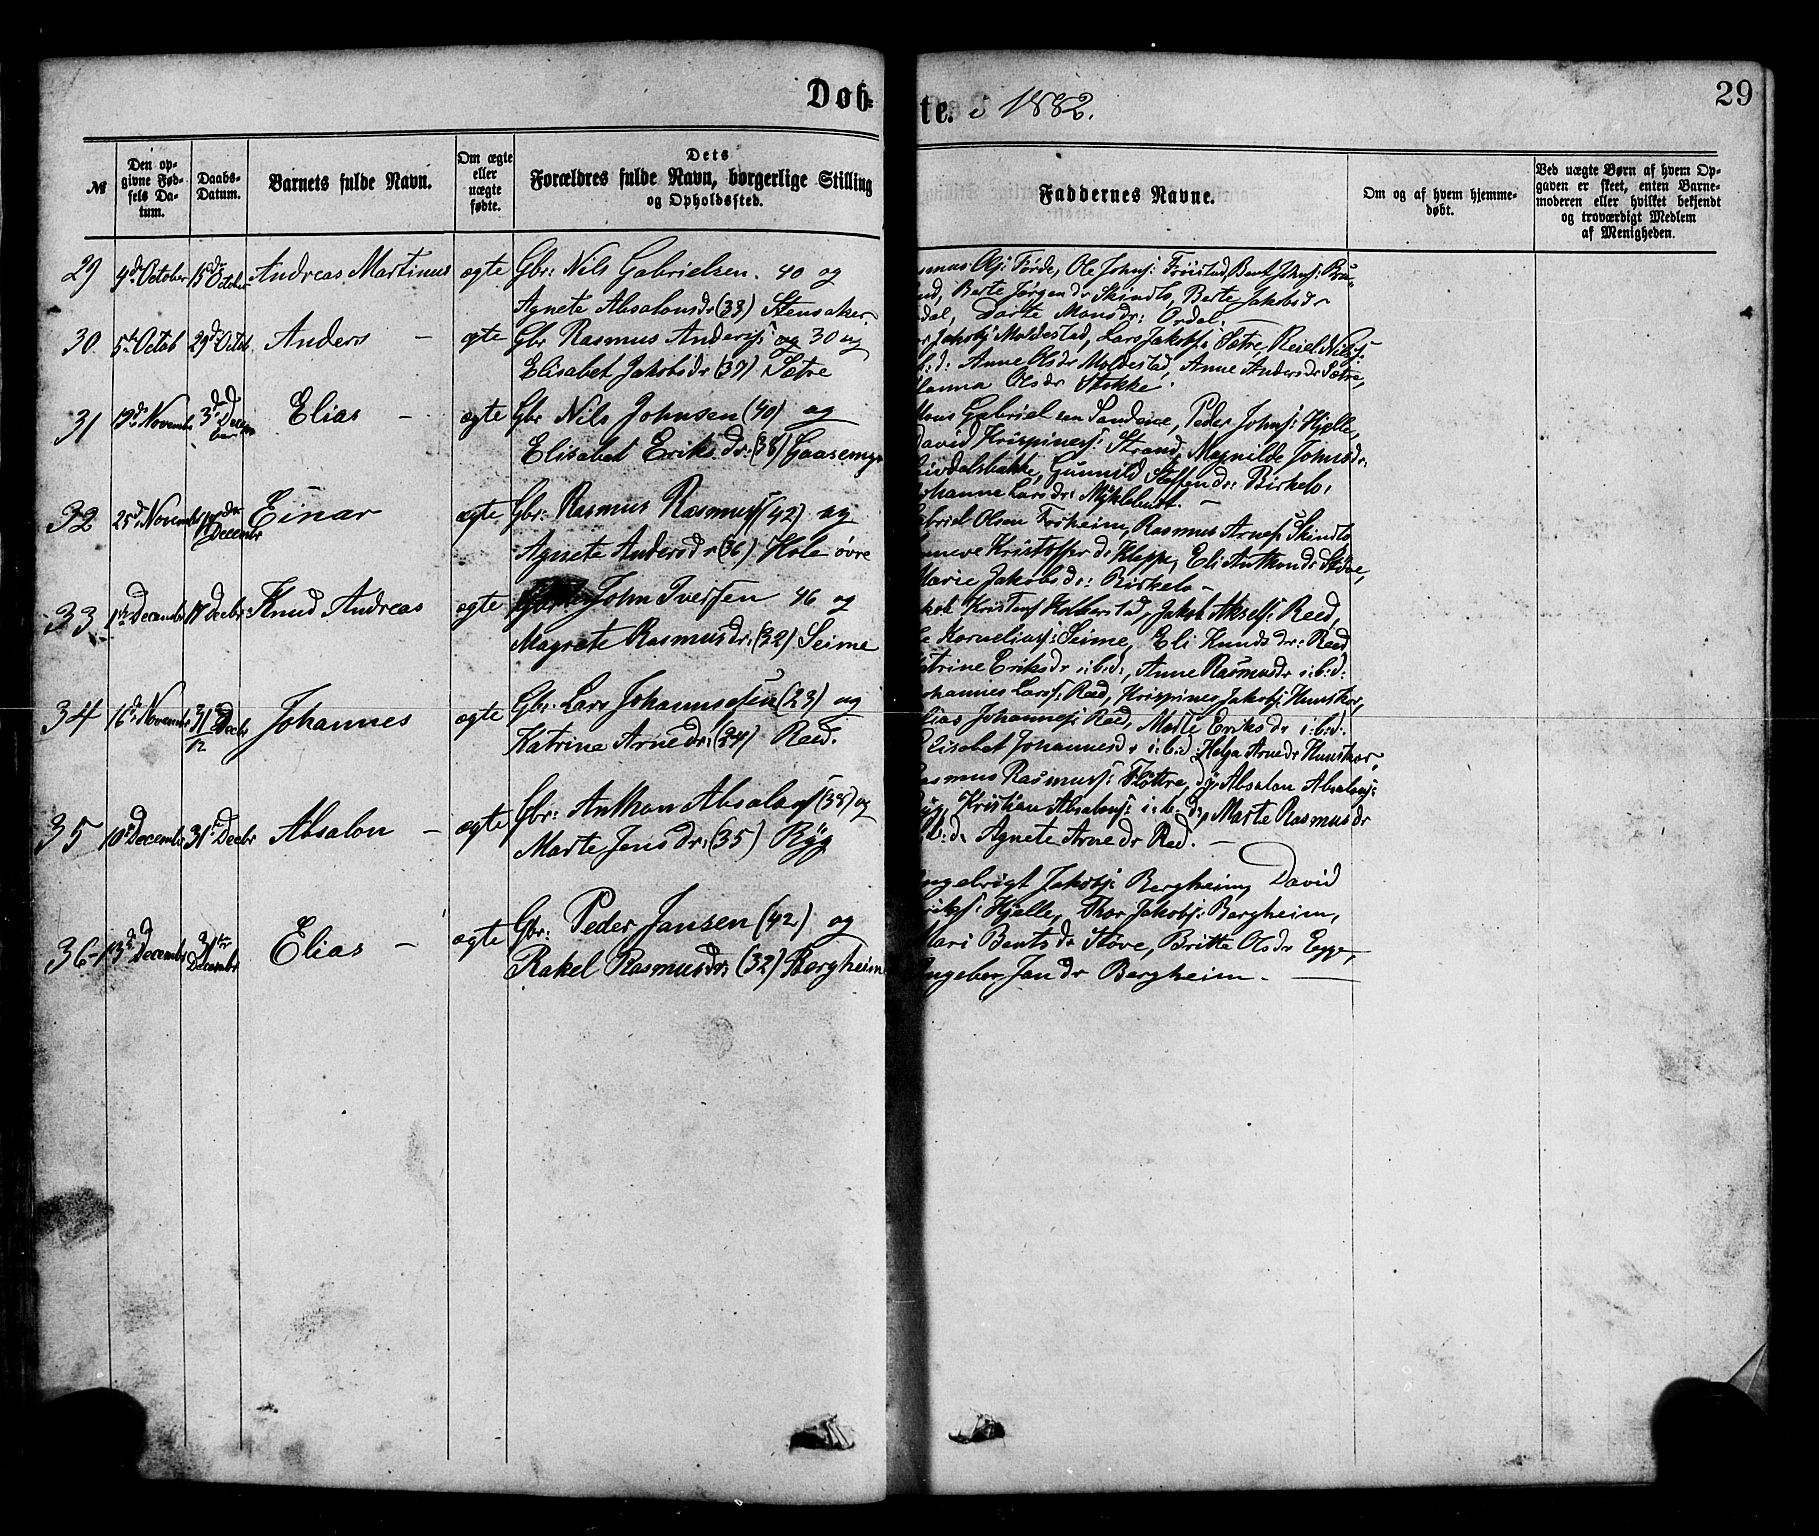 Døb-
te. i 1882.
29
№
Den op-
givne Fød-
sels Da-
tum.
Daabs-
Datum.
Barnets fulde Navn.
Om ægte
eller
uægte
fødte.
Dets
Forældres fulde Navn, borgerlige Stilling
og Opholdssted.
Faddernes Navne.
Om og af hvem hjemme-
døbt.
Ved uægte Børn af hvem Op-
gaven er skeet, enten Barne-
moderen eller hvilket bekjendt
og troværdigt Medlem
af Menigheden.
29 4de October 15de October Andreas Martinus ægte Gbr: Nils Gabrielsen. 40 og
Agnete Absalonsdr (33) Stensaker
Ols: Førde, Ole Johns: Frøistad, Bent Johns:
Berte Jørgendr Skindlo, Berte Jakobsdr
Dorte Monsdr: Ordal.
30 5te Octob 29de Octob Anders – ægte Gbr Rasmus Anders: og 30 og
Elisabet Jakobsdr (37) Sætre
Jakobs: Moldestad, Lars Jakobs: Sætre, Reiel Nils:
Anne Olsdr Moldestad, Anne Andersdr Sætre,
Olsdr Stokke.
31 19de Novembr 3de December Elias – ægte Gbr Nils Johnsen (40) og
Elisabet Eriksdr: (38) Gaasemyr
Mons Gabrielsen Sandene, Peder Johns: Hjelle,
David Krispines: Strand, Magnilde Johnsdr:
Gunnild Steffendr: Birkelo,
Johanne Larsdr: Myklebust. –
32 25de Novembr 17de Decembr Einar ægte Gbr: Rasmus Rasmuss (42) og
Agnete Andersdr (36) Hole øvre
Gabriel Olsen Frøheim, Rasmus Arnes: Skindlo
Kristofferdr Kleppe, Eli Anthondr Støve,
Marie Jakobsdr: Birkelo –
33 1ste Decembr 17 Decbr Knud Andreas ægte Gbr John Iversen 46 og
Magrete Rasmusdr: (32) Seime
Jakob Aksels: Reed,
Kornelius: Seime, Eli Knudsdr: Reed
Katrine Eriksdr i:b:d:, Anne Rasmusdr i:b:d:
34 16de Novembr 31/12 Decbr Johannes ægte Gbr. Lars Johannessen (23) og
Katrine Arnedr: (24) Reed.
Johannes Lars: Reed, Krispines Jakobs: Hunskor,
Elias Johannes: Reed, Marte Eriksdr i:b:d:
Elisabet Johannesdr i:b:d: Helga Arnedr Hunskor,
35 10de Decembr 31te Decbr Absalon – ægte Gbr: Anthon Absalons (38) og
Marte Jensdr: (35) Ryg
Rasmus Rasmuss: Fløttre, Absalon Absalons:
Ryg, Kristian Absalons: i:b:d:, Marte Rasmusdr
i:b:d: Agnete Arnedr Red. –
36 – 13de Decembr 31te Decembr Elias – ægte Gbr: Peder Jansen (42) og
Rakel Rasmusdr: (32) Bergheim
Ingebrigt Jakobs: Bergheim, David
Eriks: Hjelle, Thor Jakobs: Bergheim,
Mari Bentsdr Støve, Britte Olsdr Egge,
Ingebor Jandr Bergheim. –